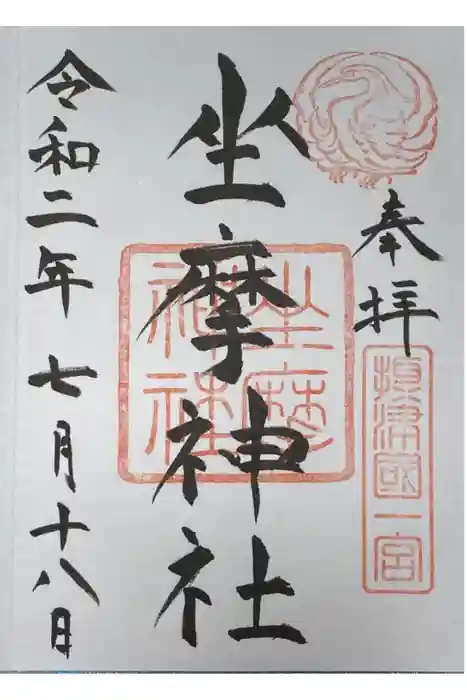 奉拝
摂津國一宮
坐摩神社
坐摩神社
令和二年七月十八日